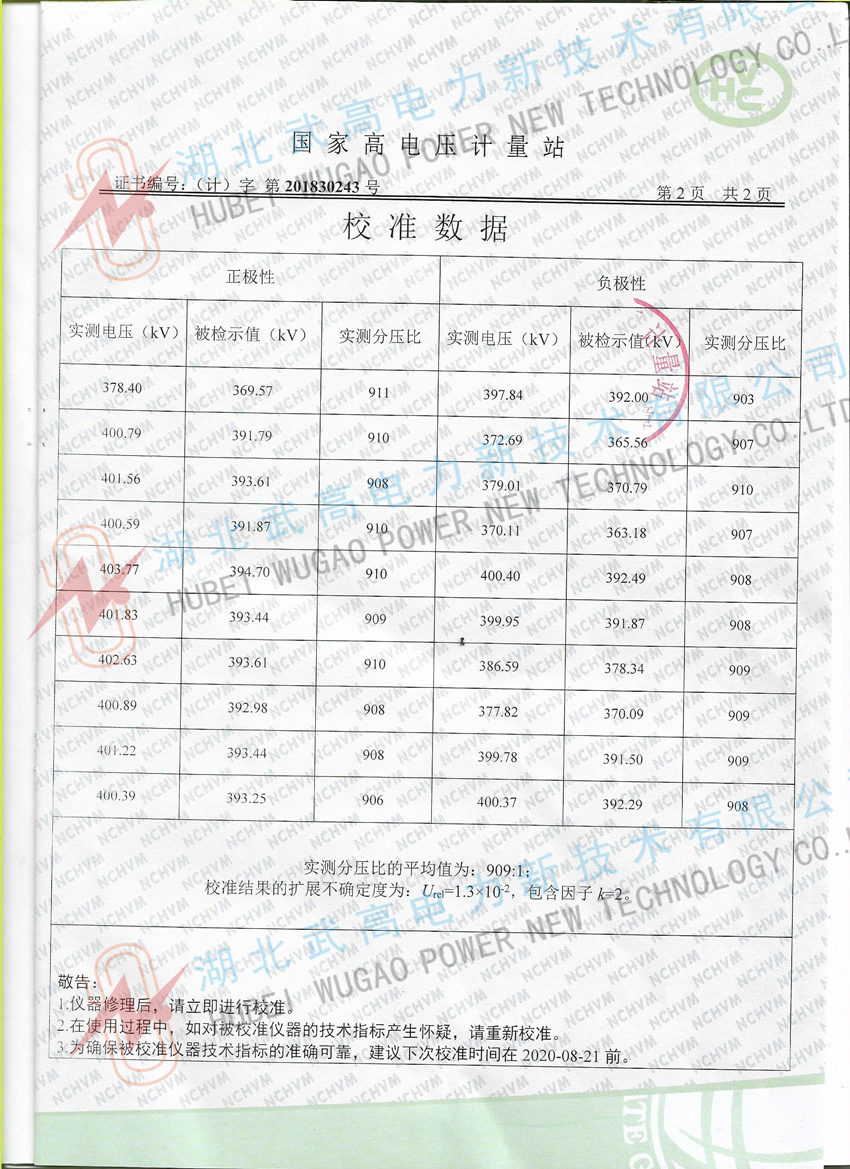 国家高电压计量站
证书编号：（计）字 第 201830243 号
第 2 页 共 2 页
校准数据
正极性 负极性
实测电压（kV） 被检示值（kV） 实测分压比 实测电压（kV） 被检示值（kV） 实测分压比
378.40 369.57 911 397.84 392.00 903
400.79 391.79 910 372.69 365.56 907
401.56 393.61 908 379.01 370.79 910
400.59 391.87 910 370.11 363.18 907
403.77 394.70 910 400.40 392.49 908
401.83 393.44 909 399.95 391.87 908
402.63 393.61 910 386.59 378.34 909
400.89 392.98 908 377.82 370.09 909
401.22 393.44 908 399.78 391.50 909
400.39 393.25 906 400.37 392.29 908
实测分压比的平均值为：909:1；
校准结果的扩展不确定度为：Urel=1.3×10-2，包含因子 k=2。
敬告：
1.仪器修理后，请立即进行校准。
2.在使用过程中，如对被校准仪器的技术指标产生怀疑，请重新校准。
3.为确保被校准仪器技术指标的准确可靠，建议下次校准时间在 2020-08-21 前。
计量站
HVC
NCHVM
湖北武高电力新技术有限公
HUBEI WUGAO POWER NEW TECHNOLOGY CO.,LT
湖北武高电力新技术有限公司
HUBEI WUGAO POWER NEW TECHNOLOGY CO.,LTD
湖北武高电力新技术有限公
HUBEI WUGAO POWER NEW TECHNOLOGY CO.,